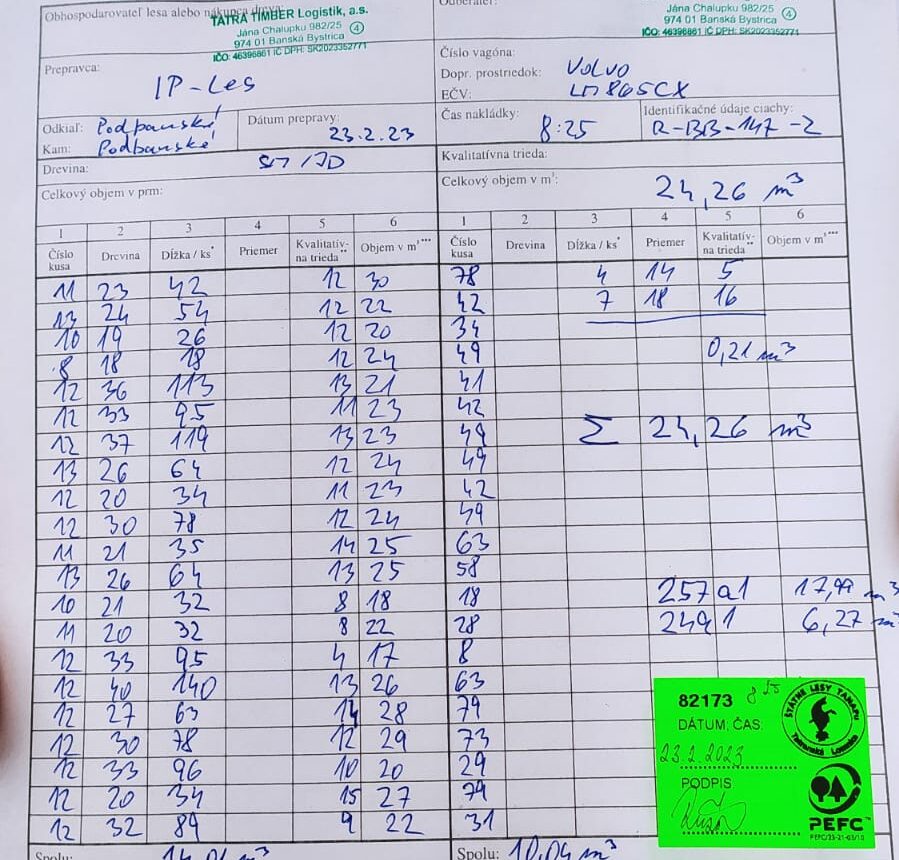 Obhospodarovateľ lesa alebo nákupca dreva:
TATRA TIMBER Logistik, a.s.
Jána Chalupku 982/25
974 01 Banská Bystrica
IČO: 46396861 IČ DPH: SK2023352771
4
Odberateľ:
Jána Chalupku 982/25
974 01 Banská Bystrica
IČO: 46396861 IČ DPH: SK2023352771
4
Prepravca:
IP-Les
Číslo vagóna:
Dopr. prostriedok: VOLVO
EČV: LM865CX
Odkiaľ: Podbanské
Kam: Podbanské
Dátum prepravy:
23.2.23
Čas nakládky:
8:25
Identifikačné údaje ciachy:
R-BB-147-2
Drevina: SM/JD
Kvalitatívna trieda:
Celkový objem v prm:
Celkový objem v m³:
24,26 m³
1 2 3 4 5 6 1 2 3 4 5 6
Číslo kusa Drevina Dĺžka / ks* Priemer Kvalitatív-na trieda** Objem v m³*** Číslo kusa Drevina Dĺžka / ks* Priemer Kvalitatív-na trieda** Objem v m³***
11 23 42 12 30 78 4 14 5
13 24 54 12 22 42 7 18 16
10 19 26 12 20 34
8 18 18 12 24 49 0,21 m³
12 36 113 13 21 41
12 33 95 11 23 42
12 37 119 13 23 49 Σ 24,26 m³
13 26 64 12 24 49
12 20 34 11 23 42
12 30 78 12 24 49
11 21 35 14 25 63
13 26 64 13 25 58
10 21 32 8 18 18 257a1 17,99 m³
11 20 32 8 22 28 249 1 6,27 m³
12 33 95 4 17 8
12 40 140 13 26 63
12 27 63 14 28 79
12 30 78 12 29 73
12 33 96 10 20 29
12 20 34 15 27 79
12 32 89 9 22 31
82173 8 25
DÁTUM, ČAS
23.2.2023
PODPIS
ŠTÁTNE LESY TANAPu
Tatranská Lomnica
PEFC
Spolu: 14,01 m³
Spolu: 10,04 m³